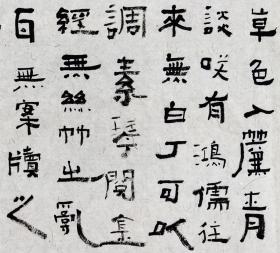 草色入簾青
談咲有鴻儒往
來無白丁可以
調素琴閱金
經無絲竹之亂
耳無案牘之